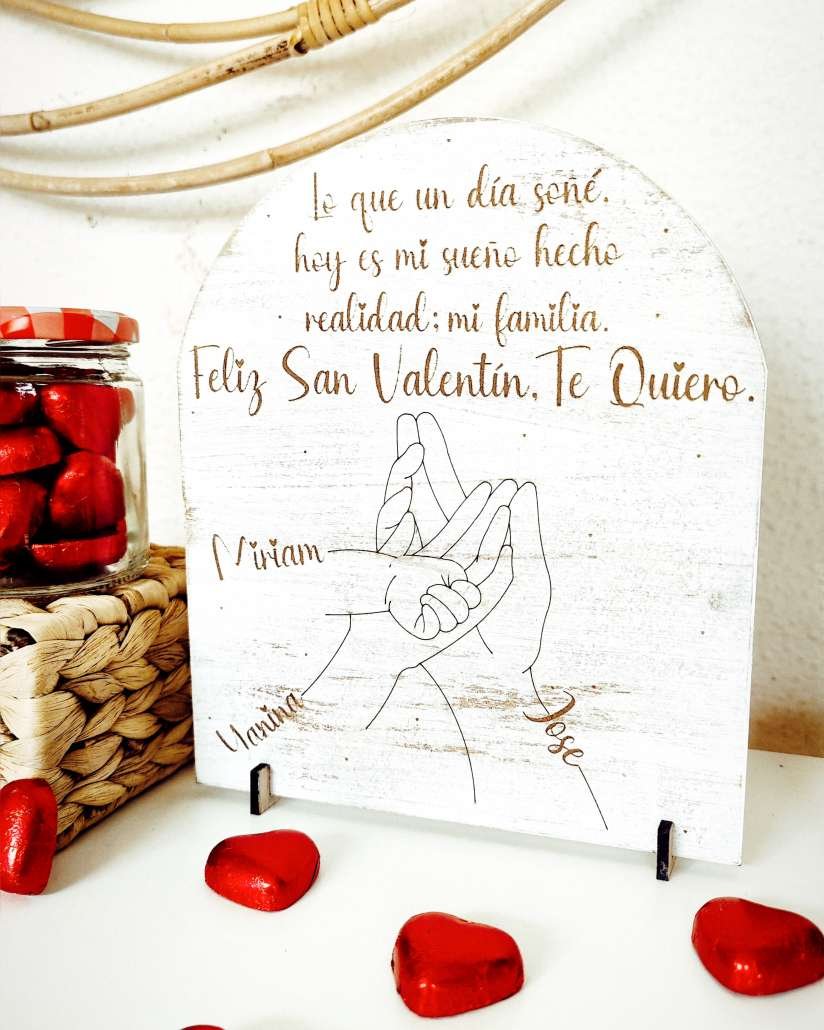 Lo que un día soñé.
hoy es mi sueño hecho
realidad: mi familia.
Feliz San Valentín, Te Quiero.
Miriam
Yanina
Jose